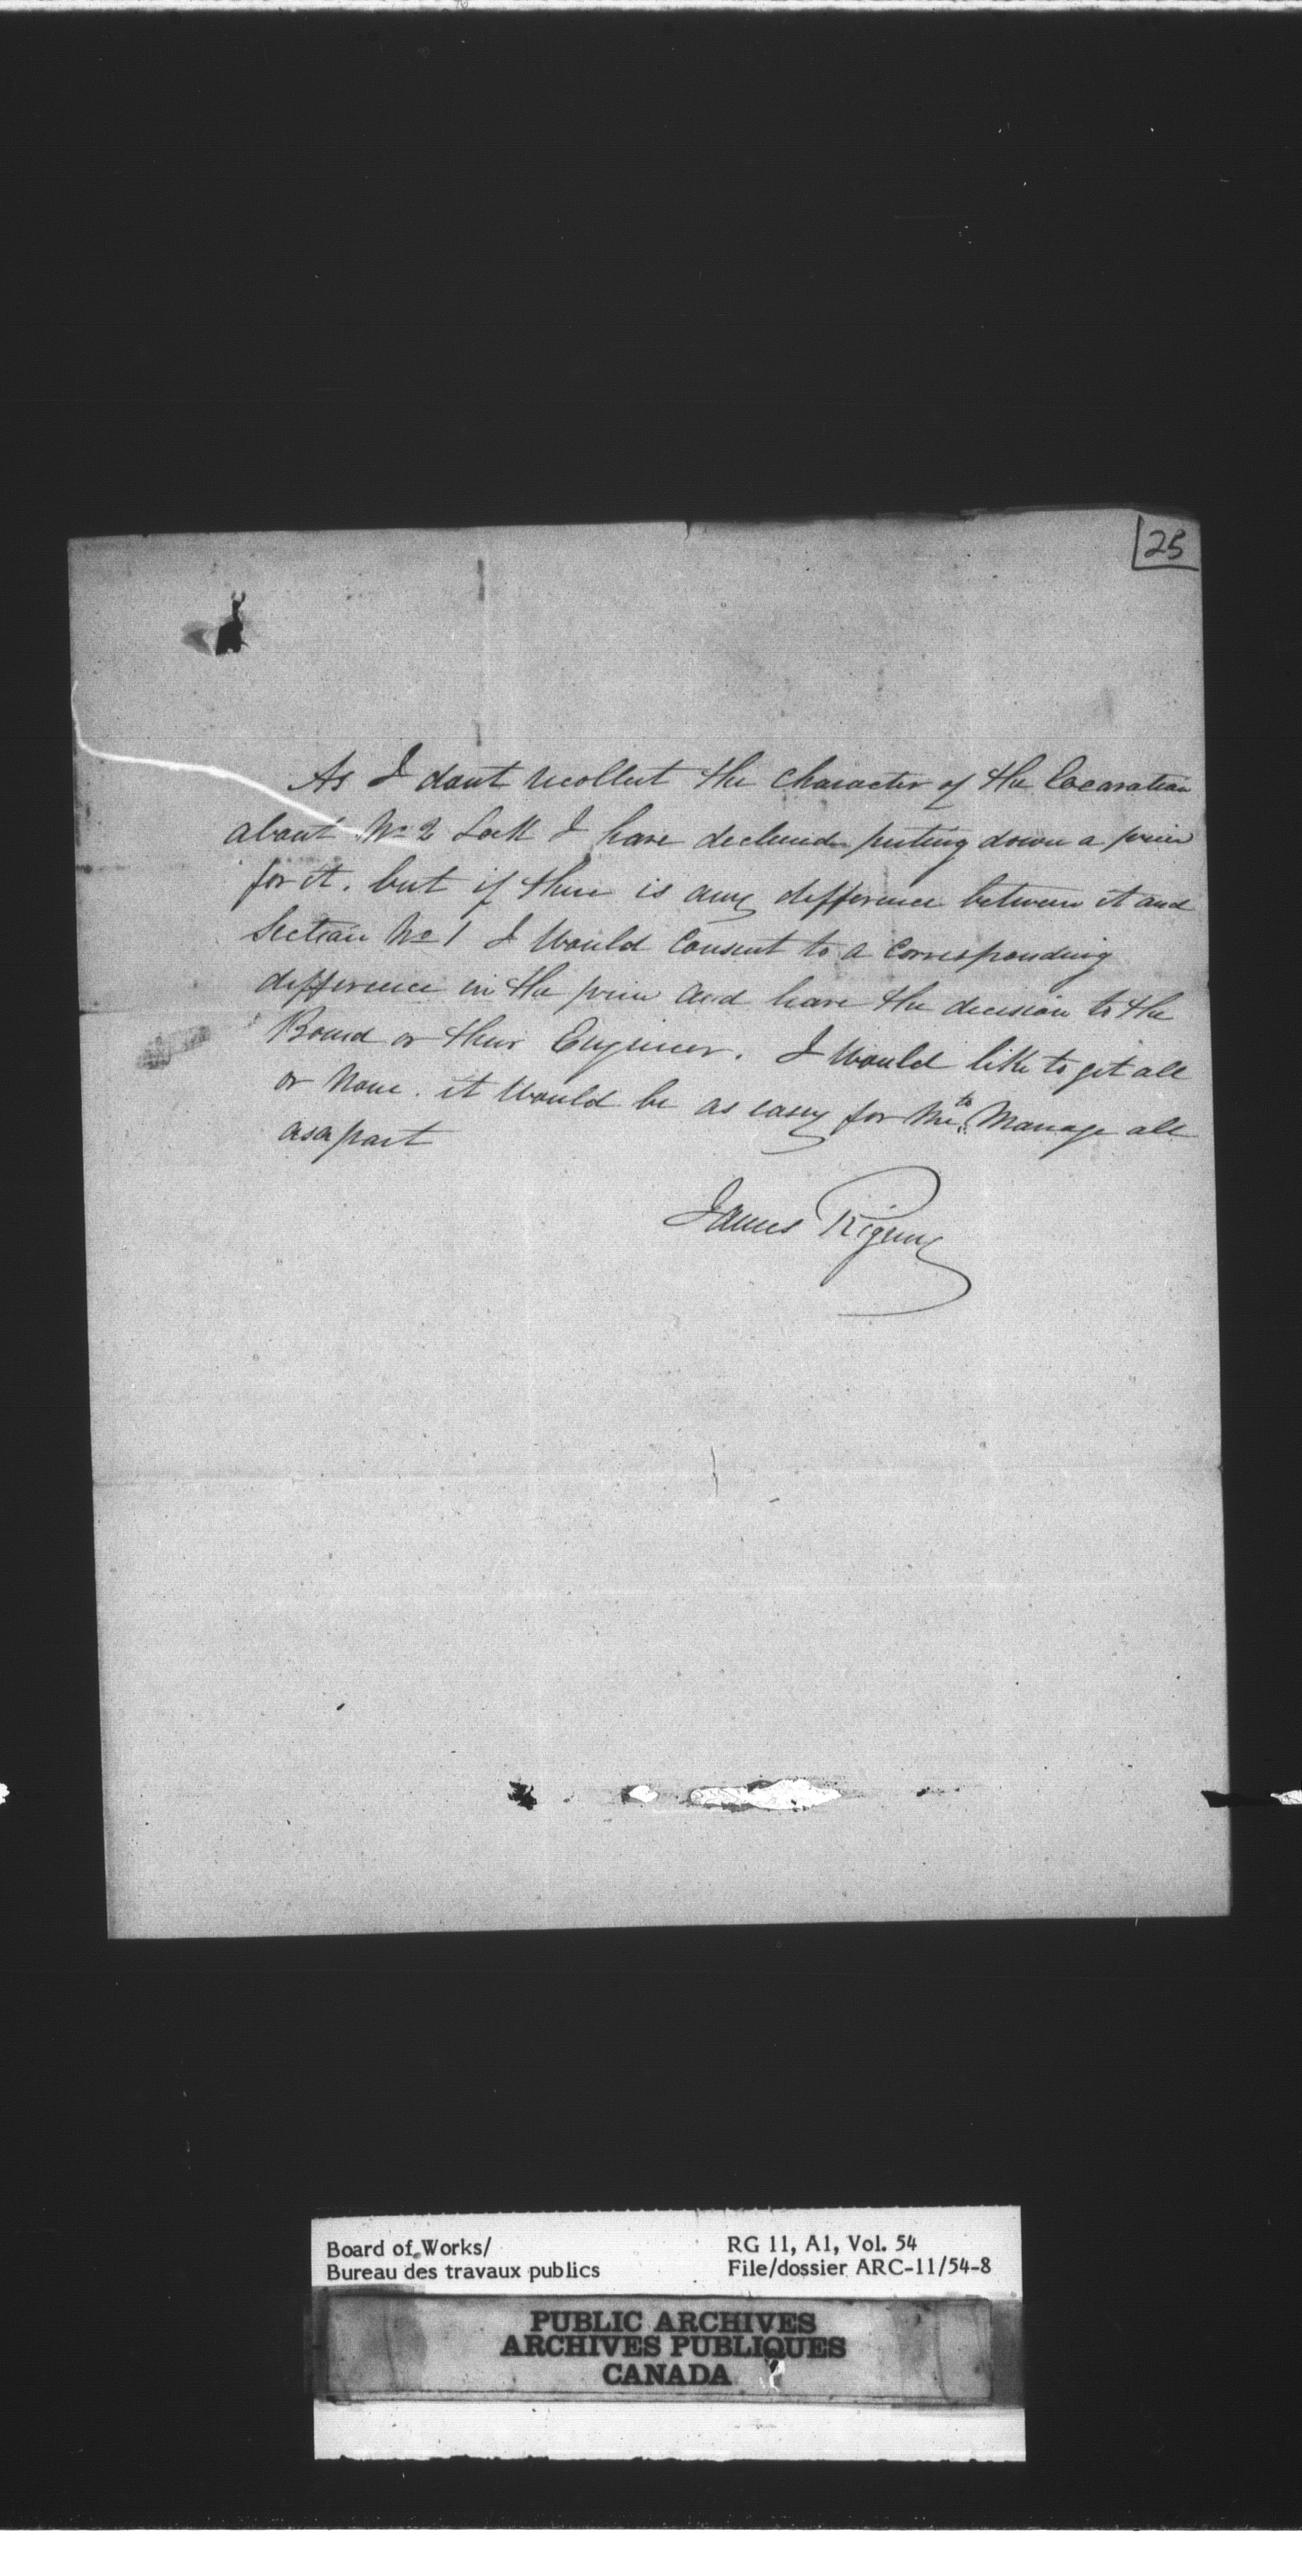 25
As I dont recollect the character of the Excavation
about No 2 Lock I have declined puting down a price
for it. but if there is any difference between it and
Section No 1 I would consent to a corresponding
difference in the price and leave the decision to the
Board or their Engineer. I would like to get all
or none. it would be as easy for me to manage all
as a part
James
Board of Works/
Bureau des travaux publics
RG 11, A1, Vol. 54
File/dossier ARC-11/54-8
PUBLIC ARCHIVES
ARCHIVES PUBLIQUES
CANADA